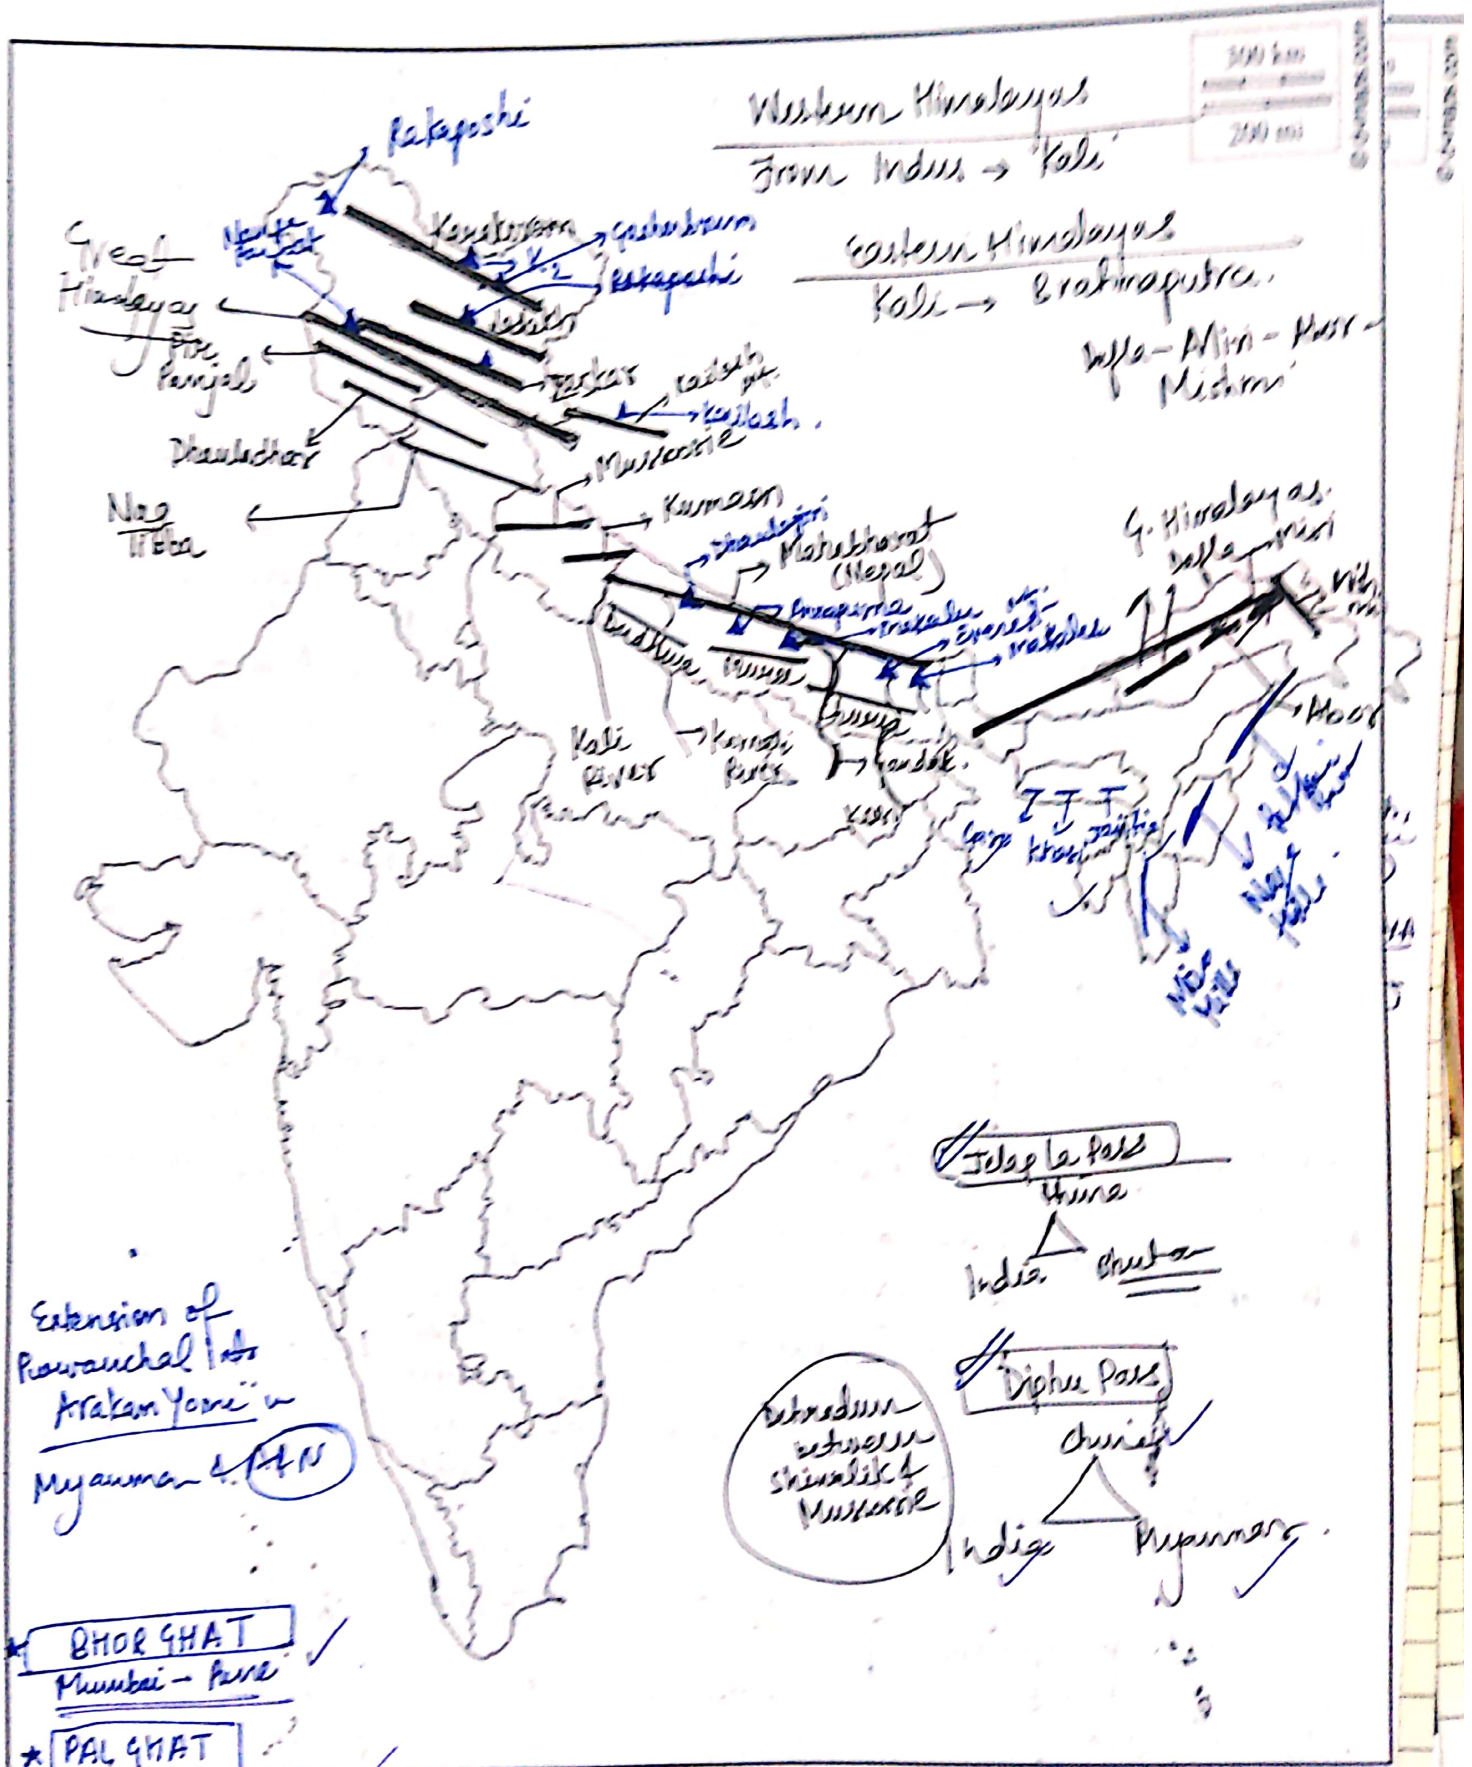 300 km
200 mi
Western Himalayas
From Indus → Kali
Eastern Himalayas
Kali → Brahmaputra.
Dafla - Miri - Abor -
Mishmi
Rakaposhi
Great
Himalayas
Karakoram
K2
Gasherbrum
Rakaposhi
Ladakh
Pir
Panjal
Zaskar
Kailash
Kailash.
Dhauladhar
Mussoorie
Nag
Tibba
Kumaon
Dhaulagiri
Mahabharat
(Nepal)
Annapurna
Makalu
Everest
Makalu
G. Himalayas
Dafla
Miri
Abor
Dudhwa
Kali
River
Karnali
River
Gandak.
Kosi
Garo
Khasi
Jaintia
Naga
Hills
Mizo
Hills
Jelep La Pass
China
India
Bhutan
Diphu Pass
China
India
Myanmar
Dehradun
between
Shivalik &
Mussoorie
Extension of
Purvanchal into
Arakan Yoma in
Myanmar & A&N
★ BHOR GHAT
Mumbai - Pune
★ PAL GHAT